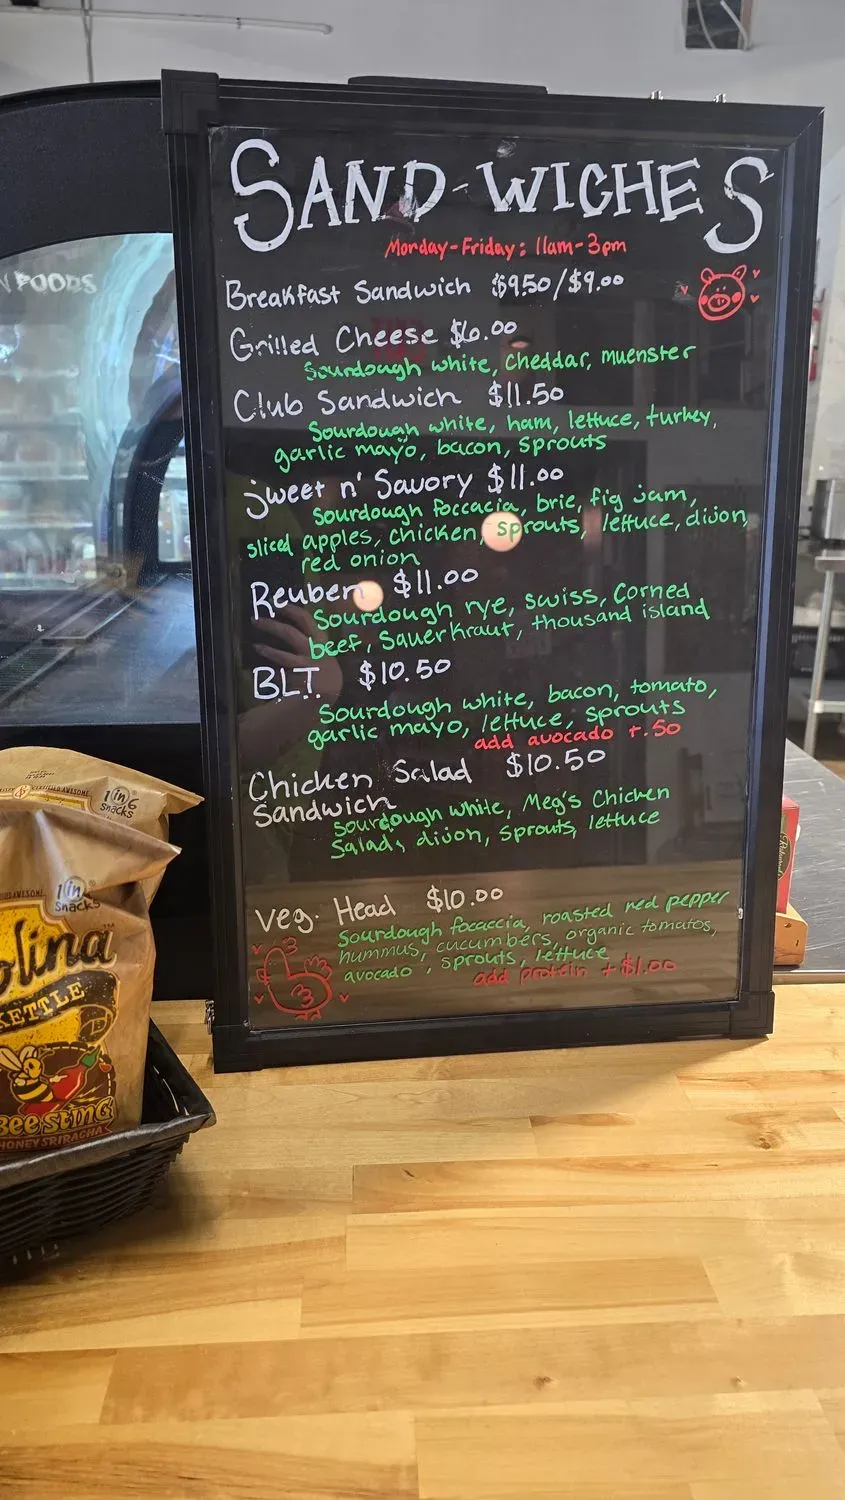 SAND-WICHES
Monday-Friday: 11am-3pm
Breakfast Sandwich $9.50/$9.00
Grilled Cheese $6.00
Sourdough white, cheddar, muenster
Club Sandwich $11.50
Sourdough white, ham, lettuce, turkey,
garlic mayo, bacon, sprouts
Sweet n' Savory $11.00
Sourdough foccacia, brie, fig jam,
sliced apples, chicken, sprouts, lettuce, dijon,
red onion
Reuben $11.00
Sourdough rye, swiss, corned
beef, Sauerkraut, thousand island
BLT $10.50
Sourdough white, bacon, tomato,
garlic mayo, lettuce, sprouts
add avocado +.50
Chicken Salad $10.50
Sandwich
Sourdough white, Meg's Chicken
Salad, dijon, sprouts, lettuce
Veg. Head $10.00
Sourdough focaccia, roasted red pepper
hummus, cucumbers, organic tomatos,
avocado, sprouts, lettuce
add protein +$1.00
FOODS
1 in 6
snacks
1 in
snacks
olina
KETTLE
Bee sting
HONEY SRIRACHA